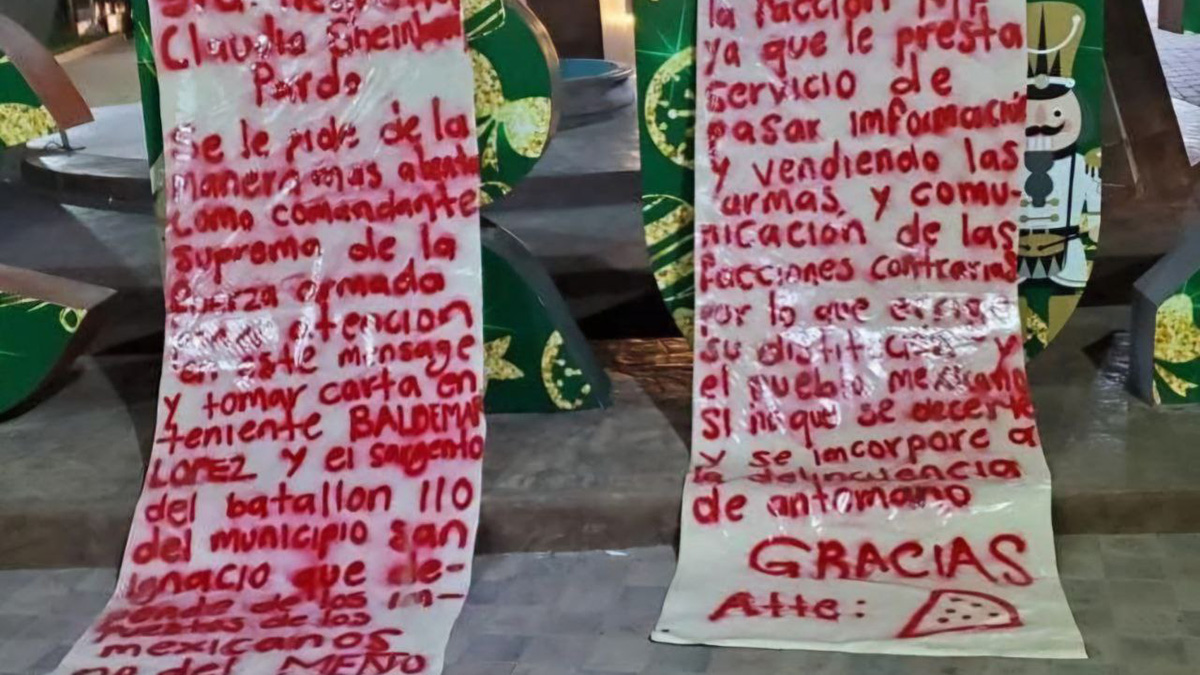 Claudia Sheinbaum
Pardo
Se le pide de la
manera mas atenta
como comandante
supremo de la
fuerza armada
atencion
en este mensage
y tomar carta en
teniente BALDEMAR
LOPEZ y el sargento
del batallon 110
del municipio san
ignacio que de-
pende de los im-
puestos de los
mexicanos
no del MENTO
la facción
ya que le presta
servicio de
pasar imformación
y vendiendo las
armas, y comu-
nicación de las
facciones contrarias
por lo que exige
su distitución y
el pueblo mexicano
si no que se decerte
y se incorpore a
la delincuencia
de antomano
GRACIAS
Atte: